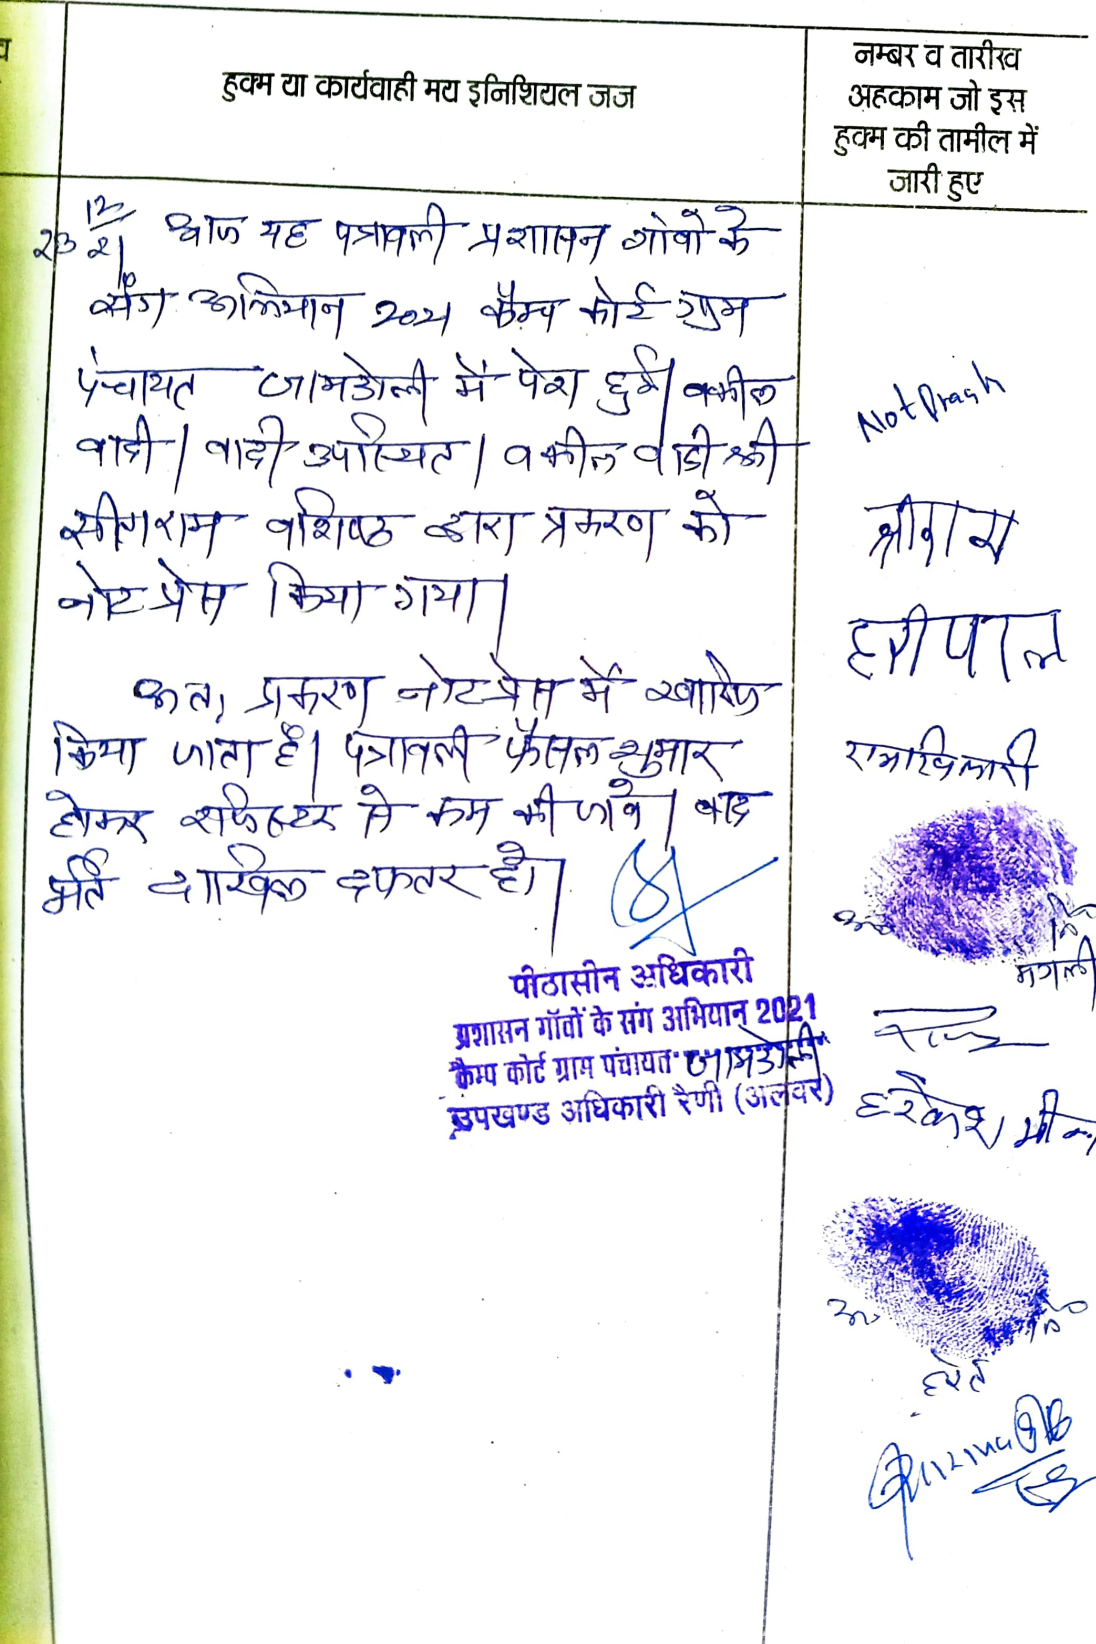 हुक्म या कार्यवाही मय इनिशियल जज
नम्बर व तारीख
अहकाम जो इस
हुक्म की तामील में
जारी हुए
23 12/21 आज यह पत्रावली प्रशासन गांवों के
संग अभियान 2021 कैम्प कोर्ट ग्राम
पंचायत जामडोली में पेश हुई। वकील
वादी। वादी उपस्थित। वकील वादी श्री
सीताराम वशिष्ठ द्वारा प्रकरण को
नोटप्रेस किया गया।
अतः प्रकरण नोटप्रेस में खारिज
किया जाता है। पत्रावली फैसल शुमार
होकर रजिस्टर से कम की जावे। बाद
दाखिल दफ्तर हो।
पीठासीन अधिकारी
प्रशासन गॉवों के संग अभियान 2021
कैम्प कोर्ट ग्राम पंचायत जामडोली
उपखण्ड अधिकारी रैणी (अलवर)
Not
हरीपाल
मंगली